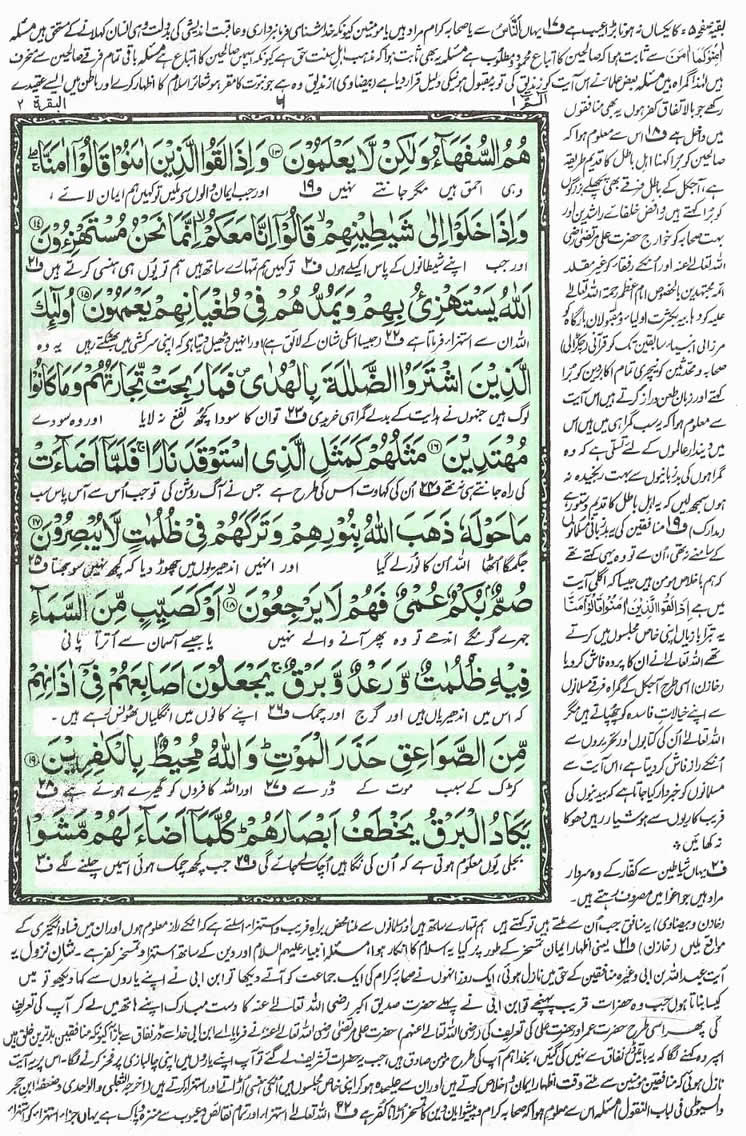 بقیہ صفحہ ۵ = کا یکساں نہ ہونا بڑا عیب ہے ف۱۷ یہاں اَلنَّاسُ سے یا صحابہ کرام مراد ہیں یا مومنین کیونکہ خدا شناسی فرمانبرداری و عاقبت اندیشی کی بدولت وہی انسان کہلانے کے مستحق ہیں مسئلہ
اٰمِنُوْا كَمَآ اٰمَنَ سے ثابت ہوا کہ صالحین کا اتباع محمود و مطلوب ہے مسئلہ یہ بھی ثابت ہوا کہ مذہب اہل سنت حق ہے کیونکہ اس میں صالحین کا اتباع ہے مسئلہ باقی تمام فرقے صالحین سے منحرف
ہیں لہٰذا گمراہ ہیں مسئلہ بعض علماء نے اس آیت کو زندیق کی توبہ مقبول ہونے کی دلیل قرار دیا ہے (بیضاوی) زندیق وہ ہے جو نبوت کا مقر ہو شعائر اسلام کا اظہار کرے اور باطن میں ایسے عقیدے
الٓمّٓ ۱
۶
البقرة ۲
هُمُ السُّفَهَآءُ وَلٰكِنْ لَّا يَعْلَمُوْنَ ۱۳ وَاِذَا لَقُوا الَّذِيْنَ اٰمَنُوْا قَالُوْٓا اٰمَنَّا
وہی احمق ہیں مگر جانتے نہیں ف۱۹ اور جب ایمان والوں سے ملیں تو کہیں ہم ایمان لائے ،
وَاِذَا خَلَوْا اِلٰى شَيٰطِيْنِهِمْ قَالُوْٓا اِنَّا مَعَكُمْ اِنَّمَا نَحْنُ مُسْتَهْزِءُوْنَ ۱۴
اور جب اپنے شیطانوں کے پاس اکیلے ہوں ف۲۰ تو کہیں ہم تمہارے ساتھ ہیں ہم تو یوں ہی ہنسی کرتے ہیں ف۲۱
اَللّٰهُ يَسْتَهْزِئُ بِهِمْ وَيَمُدُّهُمْ فِيْ طُغْيَانِهِمْ يَعْمَهُوْنَ ۱۵ اُولٰٓئِكَ
اللہ ان سے استہزاء فرماتا ہے ف۲۲ (جیسا اسکی شان کے لائق ہے) اور انہیں ڈھیل دیتا ہے کہ اپنی سرکشی میں بھٹکتے رہیں یہ وہ
الَّذِيْنَ اشْتَرَوُا الضَّلٰلَةَ بِالْهُدٰى فَمَا رَبِحَتْ تِّجَارَتُهُمْ وَمَا كَانُوْا
لوگ ہیں جنہوں نے ہدایت کے بدلے گمراہی خریدی ف۲۳ تو ان کا سودا کچھ نفع نہ لایا اور وہ سودے
مُهْتَدِيْنَ ۱۶ مَثَلُهُمْ كَمَثَلِ الَّذِى اسْتَوْقَدَ نَارًا فَلَمَّآ اَضَآءَتْ
کی راہ جانتے ہی نہ تھے ف۲۴ اُن کی کہاوت اس کی طرح ہے جس نے آگ روشن کی تو جب اُس سے آس پاس سب
مَا حَوْلَهٗ ذَهَبَ اللّٰهُ بِنُوْرِهِمْ وَتَرَكَهُمْ فِيْ ظُلُمٰتٍ لَّا يُبْصِرُوْنَ ۱۷
جگمگا اٹھا اللہ اُن کا نور لے گیا اور انہیں اندھیریوں میں چھوڑ دیا کہ کچھ نہیں سوجھتا ف۲۵
صُمٌّۢ بُكْمٌ عُمْيٌ فَهُمْ لَا يَرْجِعُوْنَ ۱۸ اَوْ كَصَيِّبٍ مِّنَ السَّمَآءِ
بہرے گونگے اندھے تو وہ پھر آنے والے نہیں یا جیسے آسمان سے اُترتا پانی
فِيْهِ ظُلُمٰتٌ وَّرَعْدٌ وَّبَرْقٌ يَجْعَلُوْنَ اَصَابِعَهُمْ فِيْٓ اٰذَانِهِمْ
کہ اس میں اندھیریاں ہیں اور گرج اور چمک ف۲۶ اپنے کانوں میں انگلیاں ٹھونس رہے ہیں ۔
مِّنَ الصَّوَاعِقِ حَذَرَ الْمَوْتِ وَاللّٰهُ مُحِيْطٌۢ بِالْكٰفِرِيْنَ ۱۹
کڑک کے سبب موت کے ڈر سے ف۲۷ اور اللہ کافروں کو گھیرے ہوئے ہے ف۲۸
يَكَادُ الْبَرْقُ يَخْطَفُ اَبْصَارَهُمْ كُلَّمَآ اَضَآءَ لَهُمْ مَّشَوْا
بجلی یوں معلوم ہوتی ہے کہ اُن کی نگاہیں اُچک لے جائے گی ف۲۹ جب کچھ چمک ہوئی اسمیں چلنے لگے ف۳۰
رکھے جو بالاتفاق کفر ہوں یہ بھی منافقوں
میں داخل ہے ف۱۸ اس سے معلوم ہوا کہ
صالحین کو برا کہنا اہل باطل کا قدیم طریقہ
ہے ، آجکل کے باطل فرقے بھی پچھلے بزرگوں
کو برا کہتے ہیں روافض خلفائے راشدین اور
بہت صحابہ کو خوارج حضرت علی مرتضیٰ رضی
اللہ تعالےٰ عنہ اور انکے رفقاء کو غیر مقلد
ائمہ مجتہدین بالخصوص امام اعظم رحمۃ اللہ تعالےٰ
علیہ کو وہابیہ بکثرت اولیاء و مقبولان بارگاہ کو
مرزائی انبیاء سابقین تک کو قرآنی (چکڑالی)
صحابہ و محدثین کو نیچری تمام اکابر دین کو برا
کہتے اور زبان طعن دراز کرتے ہیں اس آیت
سے معلوم ہوا کہ یہ سب گمراہی میں ہیں اس
میں دیندار عالموں کے لئے تسلی ہے کہ وہ
گمراہوں کی بدزبانیوں سے بہت رنجیدہ نہ
ہوں سمجھ لیں کہ یہ اہل باطل کا قدیم دستور ہے
(مدارک) ف۱۹ منافقین کی یہ بدزبانی مسلمانوں
کے سامنے نہ تھی ، اُن سے تو وہ یہی کہتے تھے
کہ ہم باخلاص مومن ہیں جیسا کہ اگلی آیت
میں ہے اِذَا لَقُوا الَّذِيْنَ اٰمَنُوْا قَالُوْٓا اٰمَنَّا
یہ تبرا بازیاں اپنی خاص مجلسوں میں کرتے
تھے اللہ تعالےٰ نے ان کا پردہ فاش کر دیا
(خازن) اسی طرح آجکل کے گمراہ فرقے مسلمانوں
سے اپنے خیالات فاسدہ کو چھپاتے ہیں مگر
اللہ تعالےٰ اُن کی کتابوں اور تحریروں سے
اُنکے راز فاش کر دیتا ہے ، اس آیت سے
مسلمانوں کو خبردار کیا جاتا ہے کہ بے دینوں کی
فریب کاریوں سے ہوشیار رہیں دھوکا
نہ کھائیں ۔
ف۲۰ یہاں شیاطین سے کفار کے وہ سردار
مراد ہیں جو اغوا میں مصروف رہتے ہیں ۔
(خازن و بیضاوی) یہ منافق جب اُن سے ملتے ہیں تو کہتے ہیں ہم تمہارے ساتھ ہیں اور مسلمانوں سے ملنا محض براہ فریب و استہزاء اسلئے ہے کہ انکے راز معلوم ہوں اور ان میں فساد انگیزی کے
مواقع ملیں (خازن) ف۲۱ یعنی اظہار ایمان تمسخر کے طور پر کیا یہ اسلام کا انکار ہوا ، مسئلہ انبیاء علیہم السلام اور دین کے ساتھ استہزاء و تمسخر کفر ہے ۔ شانِ نزول یہ
آیت عبداللہ بن ابی وغیرہ منافقین کے حق میں نازل ہوئی ، ایک روز انہوں نے صحابہ کرام کی ایک جماعت کو آتے دیکھا تو ابن ابی نے اپنے یاروں سے کہا دیکھو تو میں
کیسا بناتا ہوں جب وہ حضرات قریب پہنچے تو ابن ابی نے پہلے حضرت صدیق اکبر رضی اللہ تعالےٰ عنہ کا دست مبارک اپنے ہاتھ میں لے کر آپ کی تعریف
کی پھر اسی طرح حضرت عمر اور حضرت علی کی تعریف کی (رضی اللہ تعالےٰ عنہم) حضرت علی مرتضیٰ رضی اللہ تعالےٰ عنہ نے فرمایا اے ابن ابی خدا سے ڈر نفاق سے باز آ کیونکہ منافقین بدترین خلق ہیں
اسپر وہ کہنے لگا کہ یہ باتیں نفاق سے نہیں کی گئیں ، بخدا ہم آپ کی طرح مومن صادق ہیں ، جب یہ حضرات تشریف لے گئے تو آپ اپنے یاروں میں اپنی چالبازی پر فخر کرنے لگا ۔ اس پر یہ آیت
نازل ہوئی کہ منافقین مومنین سے ملتے وقت اظہار ایمان و اخلاص کرتے ہیں اور ان سے علیحدہ ہو کر اپنی خاص مجلسوں میں انکی ہنسی اُڑاتے اور استہزاء کرتے ہیں (اخرجہ الثعلبی و الواحدی و ضعفہ ابن حجر
والسیوطی فی لباب النقول) مسئلہ اس سے معلوم ہوا کہ صحابہ کرام و پیشوایان دین کا تمسخر اڑانا کفر ہے ف۲۲ اللہ تعالےٰ استہزاء اور تمام نقائص و عیوب سے منزہ و پاک ہے یہاں جزاء استہزاء کو استہزاء